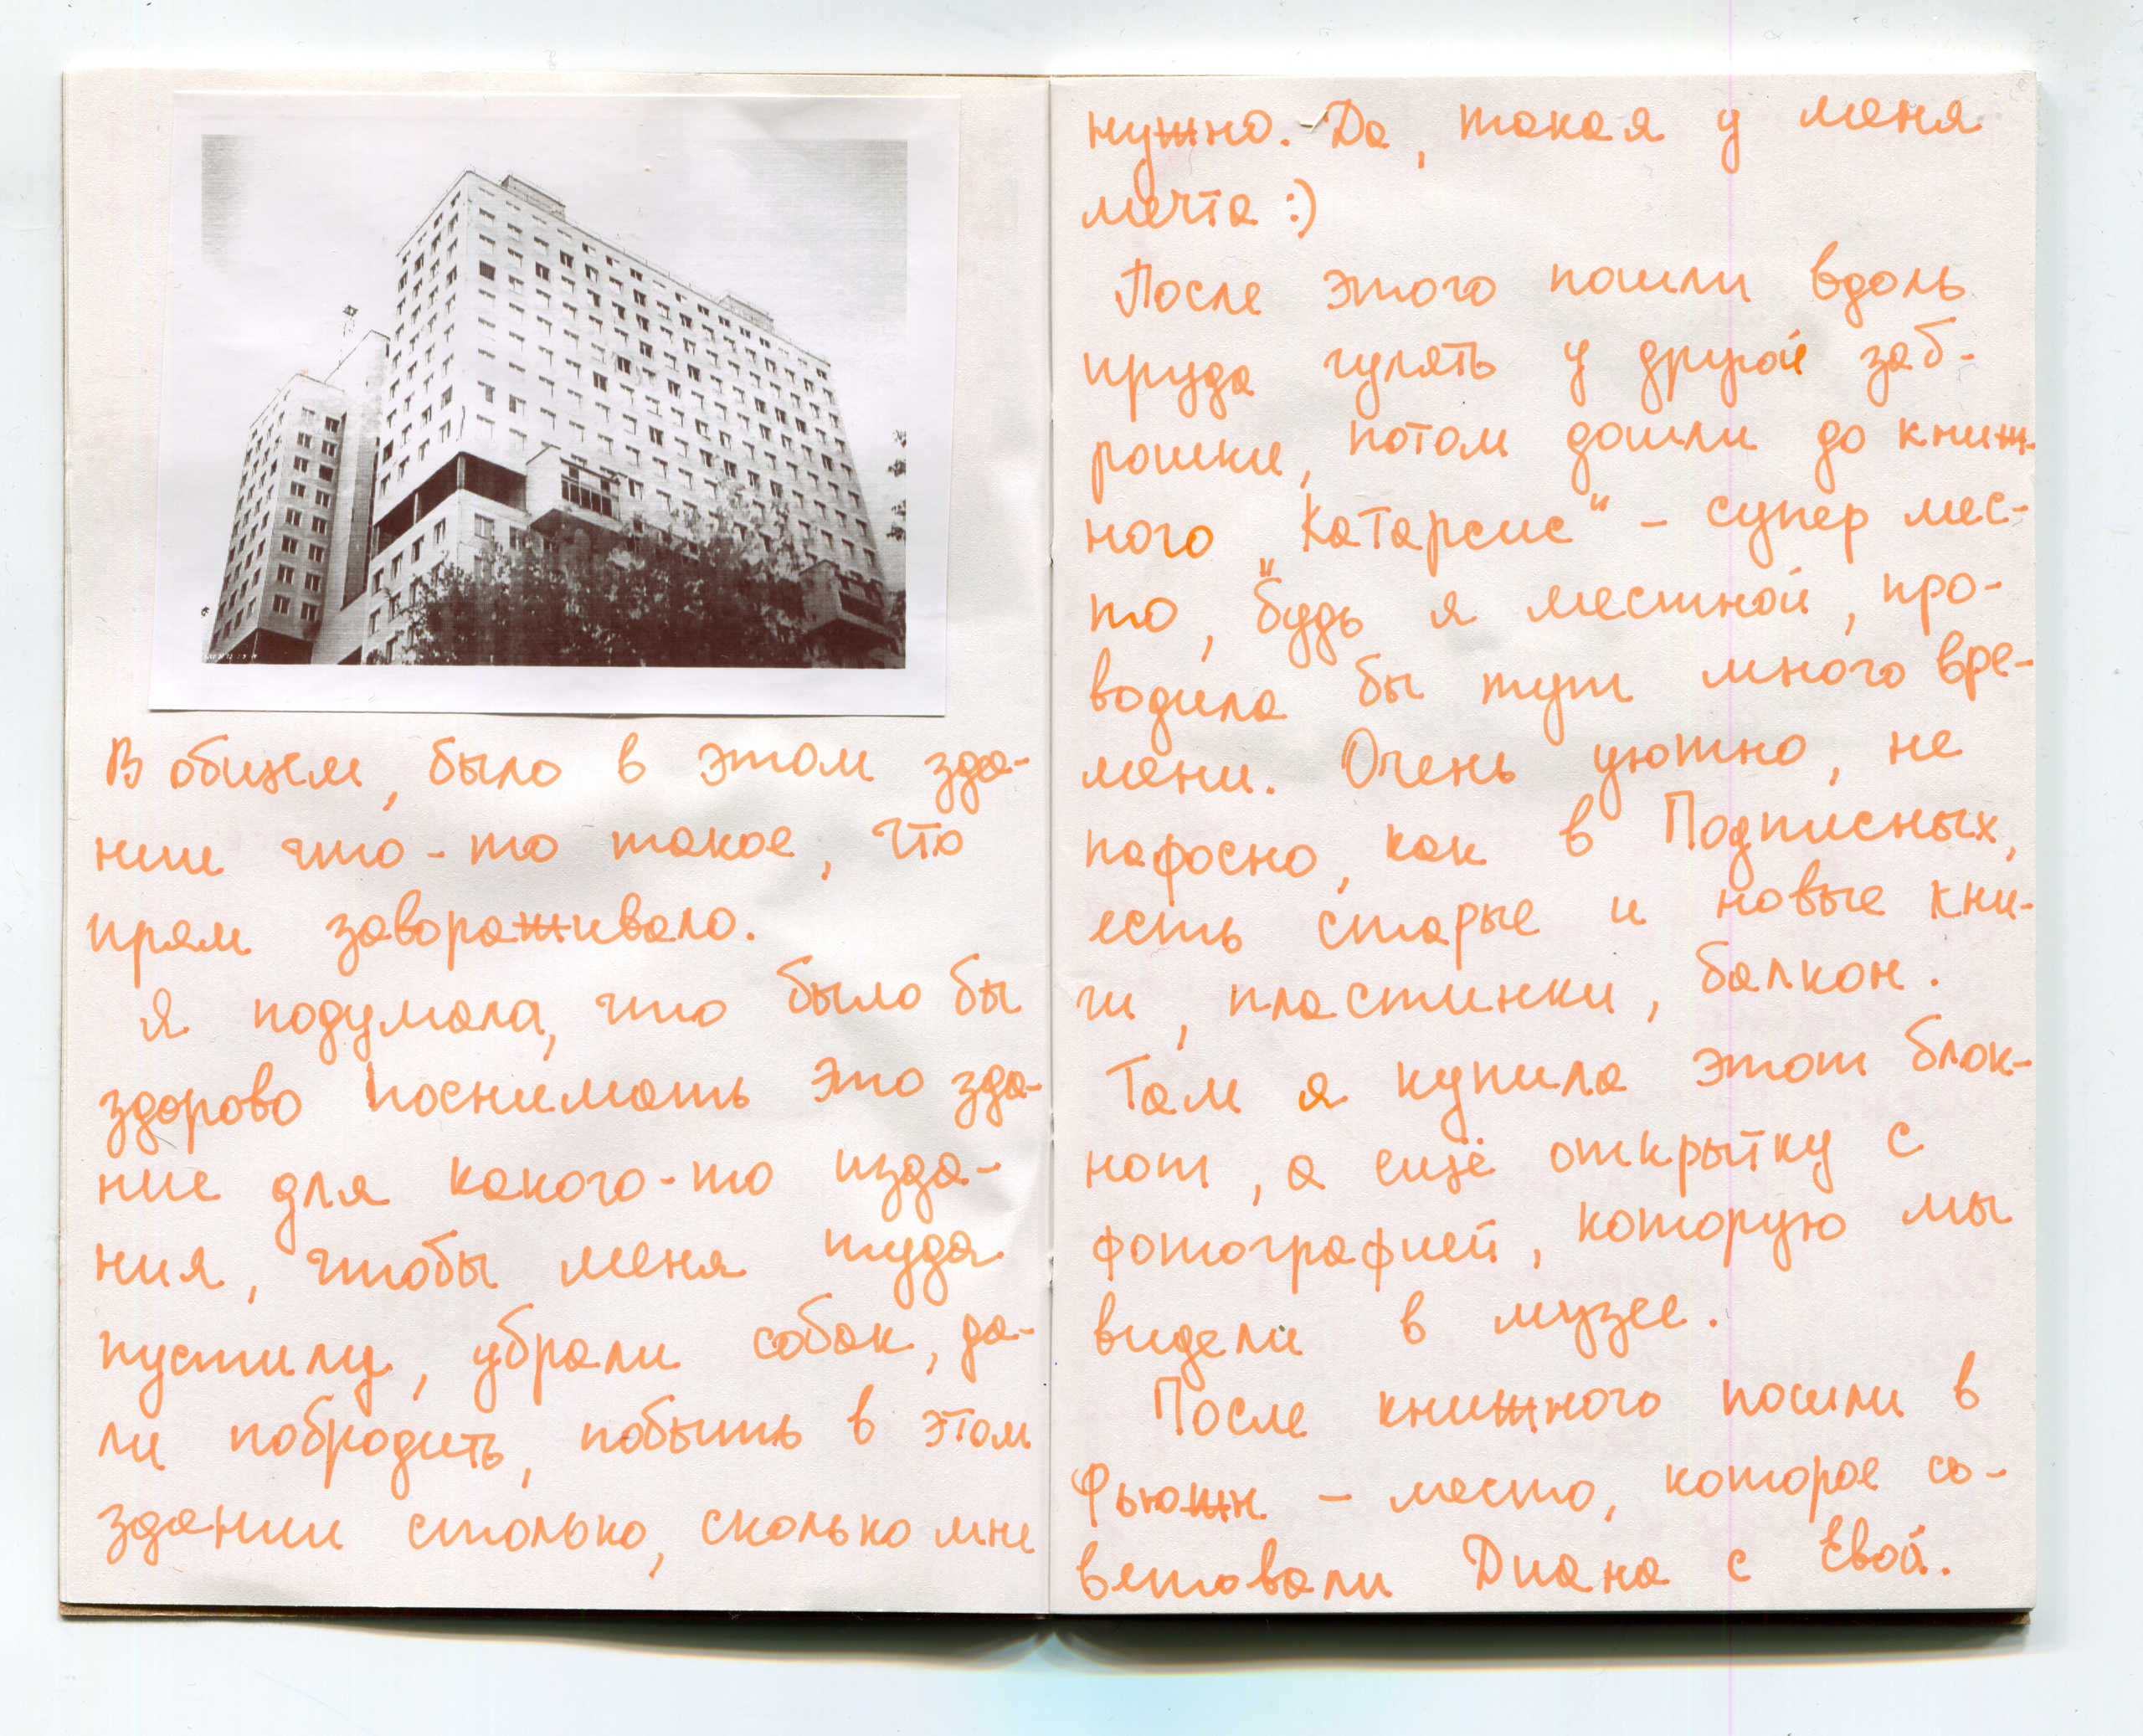 В общем, было в этом зда-
нии что-то такое, что
прям завораживало.
Я подумала, что было бы
здорово поснимать это зда-
ние для какого-то изда-
ния, чтобы меня туда
пустили, убрали собак, да-
ли побродить, побыть в этом
здании столько, сколько мне
нужно. Да, такая у меня
мечта :)
После этого пошли вдоль
пруда гулять у другой заб-
рошки, потом дошли до книж-
ного „Катарсис" – супер мес-
то, будь я местной, про-
водила бы тут много вре-
мени. Очень уютно, не
пафосно, как в Подписных,
есть старые и новые кни-
ги, пластинки, балкон.
Там я купила этот блок-
нот, а ещё открытку с
фотографией, которую мы
видели в музее.
После книжного пошли в
Фьюжн – место, которое со-
ветовали Диана с Евой.